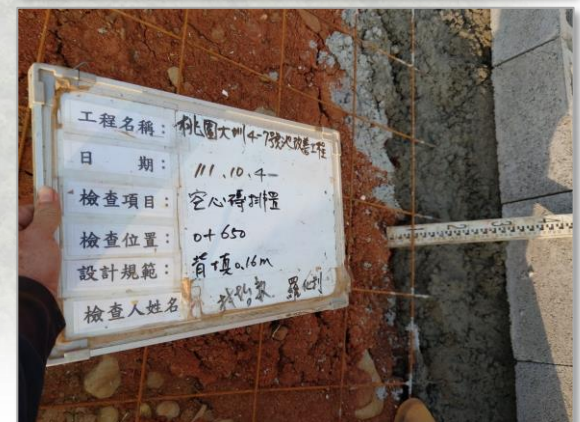 工程名稱：桃園大圳4-7號池改善工程
日 期：111.10.4
檢查項目：空心磚排置
檢查位置：0+650
設計規範：背填0.16m
檢查人姓名 羅